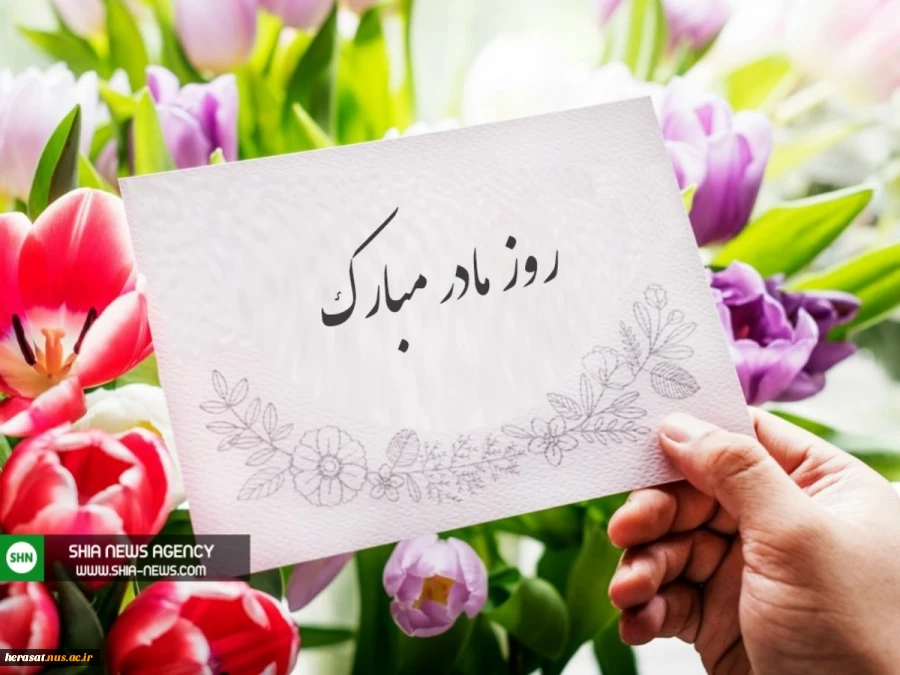 روز مادر مبارک
SHN
SHIA NEWS AGENCY
WWW.SHIA-NEWS.COM
herasat.nus.ac.ir